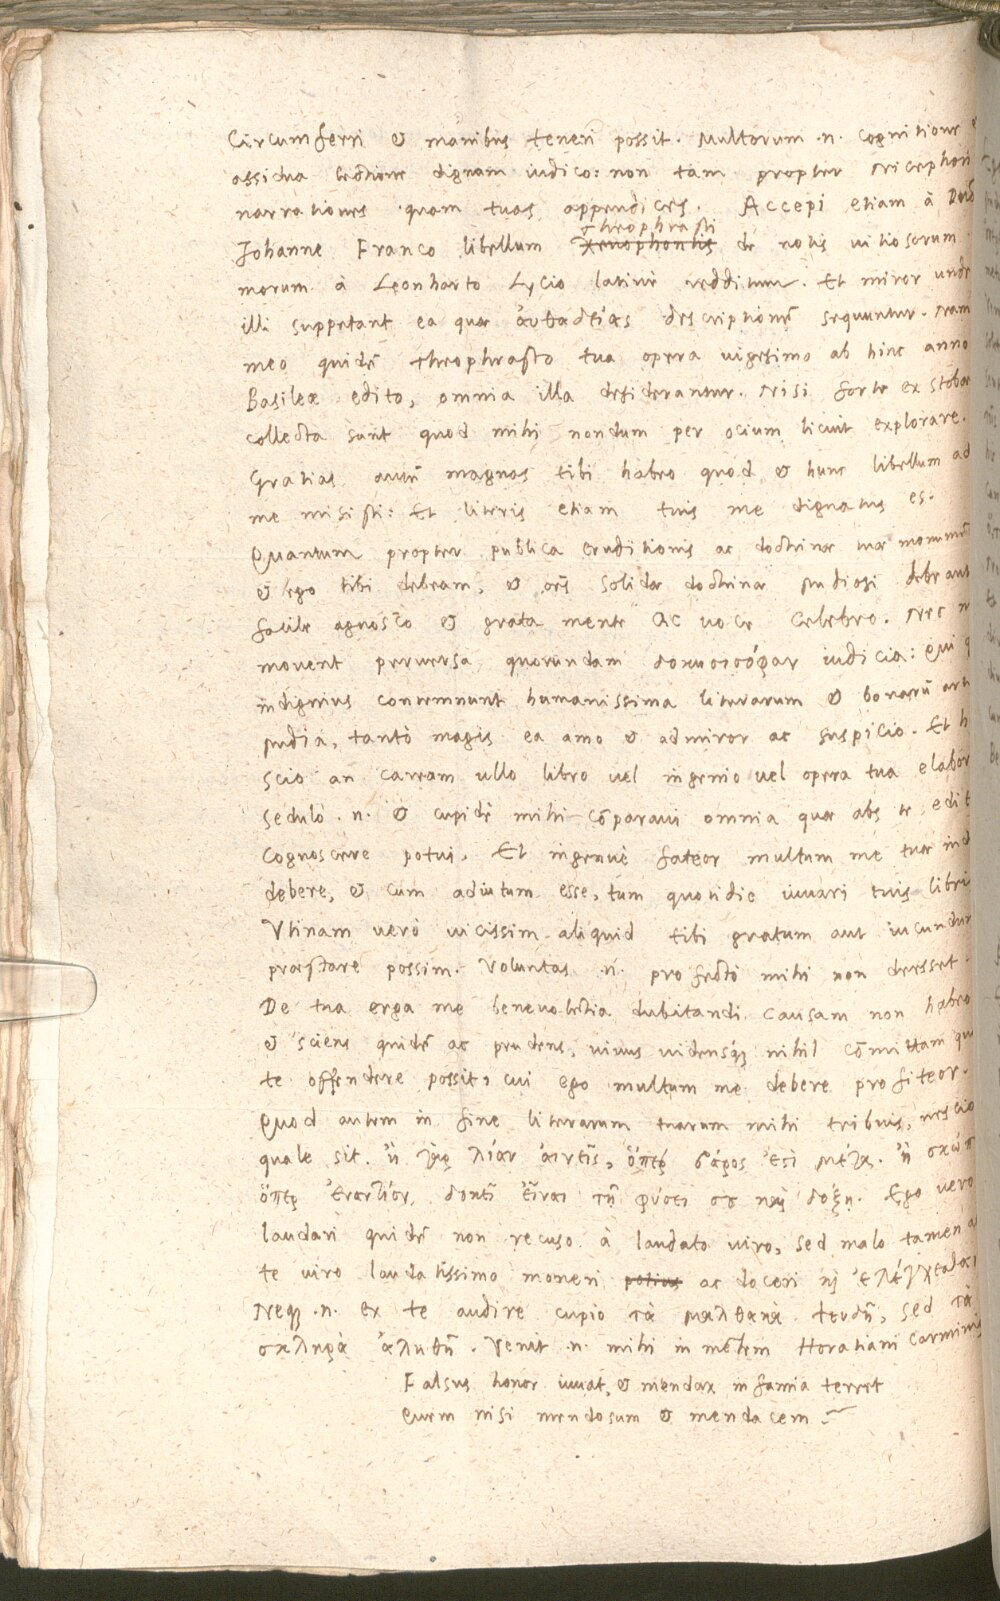 Circumferri & manibus teneri possit. Multorum .n. cognitione &
assidua lectione dignam iudico: non tam propter Nicephori
narrationes quam tuas appendices. Accepi etiam à Docto
Theophrasti
Johanne Franco libellum Xenophontis de notis uitiosorum
morum à Leonharto Lycio latinè redditum. Et miror unde
illi suppetant ea quae ἀυθαδείας descriptionẽ sequuntur. Nam
meo quidẽ Theophrasto tua opera uigesimo ab hinc anno
Basileae edito, omnia illa desiderantur. Nisi forte ex Stobae
collecta sunt quod mihi nondum per ocium licuit explorare.
Gratias autẽ magnas tibi habeo quod & hunc libellum ad
me misisti: Et literis etiam tuis me dignatus es.
Quantum propter publica eruditionis ac doctrinae tuae monumẽ
& ego tibi debeam, & oẽs solidae doctrinae studiosi debeant
facile agnosco & grata mente ac uoce celebro. Nec
mouent peruersa quorundam δοκησισόφων iudicia: Qui q
indignius contemnunt humanissima literarum & bonarũ arti
studia, tantò magis ea amo & admiror ac suspicio. Et h
scio an caream ullo libro uel ingenio uel opera tua elabor
Sedulò .n. & cupidè mihi cõparaui omnia quae abs te edit
cognoscere potui. Et ingenuè fateor multum me tuae ind
debere, & cùm adiutum esse, tum quotidie iuuari tuis libris
Vtinam uerò uicissim aliquid tibi gratum aut iucundum
praestare possim. Voluntas .n. profectò mihi non deesset.
De tua erga me beneuolẽtia dubitandi causam non habeo
& sciens quidẽ ac prudens, uiuus uidensq3 nihil cõmittam quo
te offendere possit, cui ego multum me debere profiteor.
Quod autem in fine literarum tuarum mihi tribuis, nescio
quale sit. ἢ γὰρ λίαν ἀινεῖς, ὅπερ βάρος ἐστὶ μέγα. ἢ σκώπ
ὅπερ ἐναντίον δοκεῖ εἶναι τῇ φύσει σου καὶ δόξῃ. Ego uero
laudari quidẽ non recuso à laudato uiro, Sed malo tamen a
te uiro laudatissimo moneri potius ac doceri καὶ ἐλέγχεσθαι
Neq3 .n. ex te audire cupio τὰ μαλθακὰ ψευδῆ, sed τὰ
σκληρὰ ἀληθῆ. Venit .n. mihi in mẽtem Horatiani carminis
Falsus honor iuuat, & mendax infamia terret
Quem nisi mendosum & mendacem